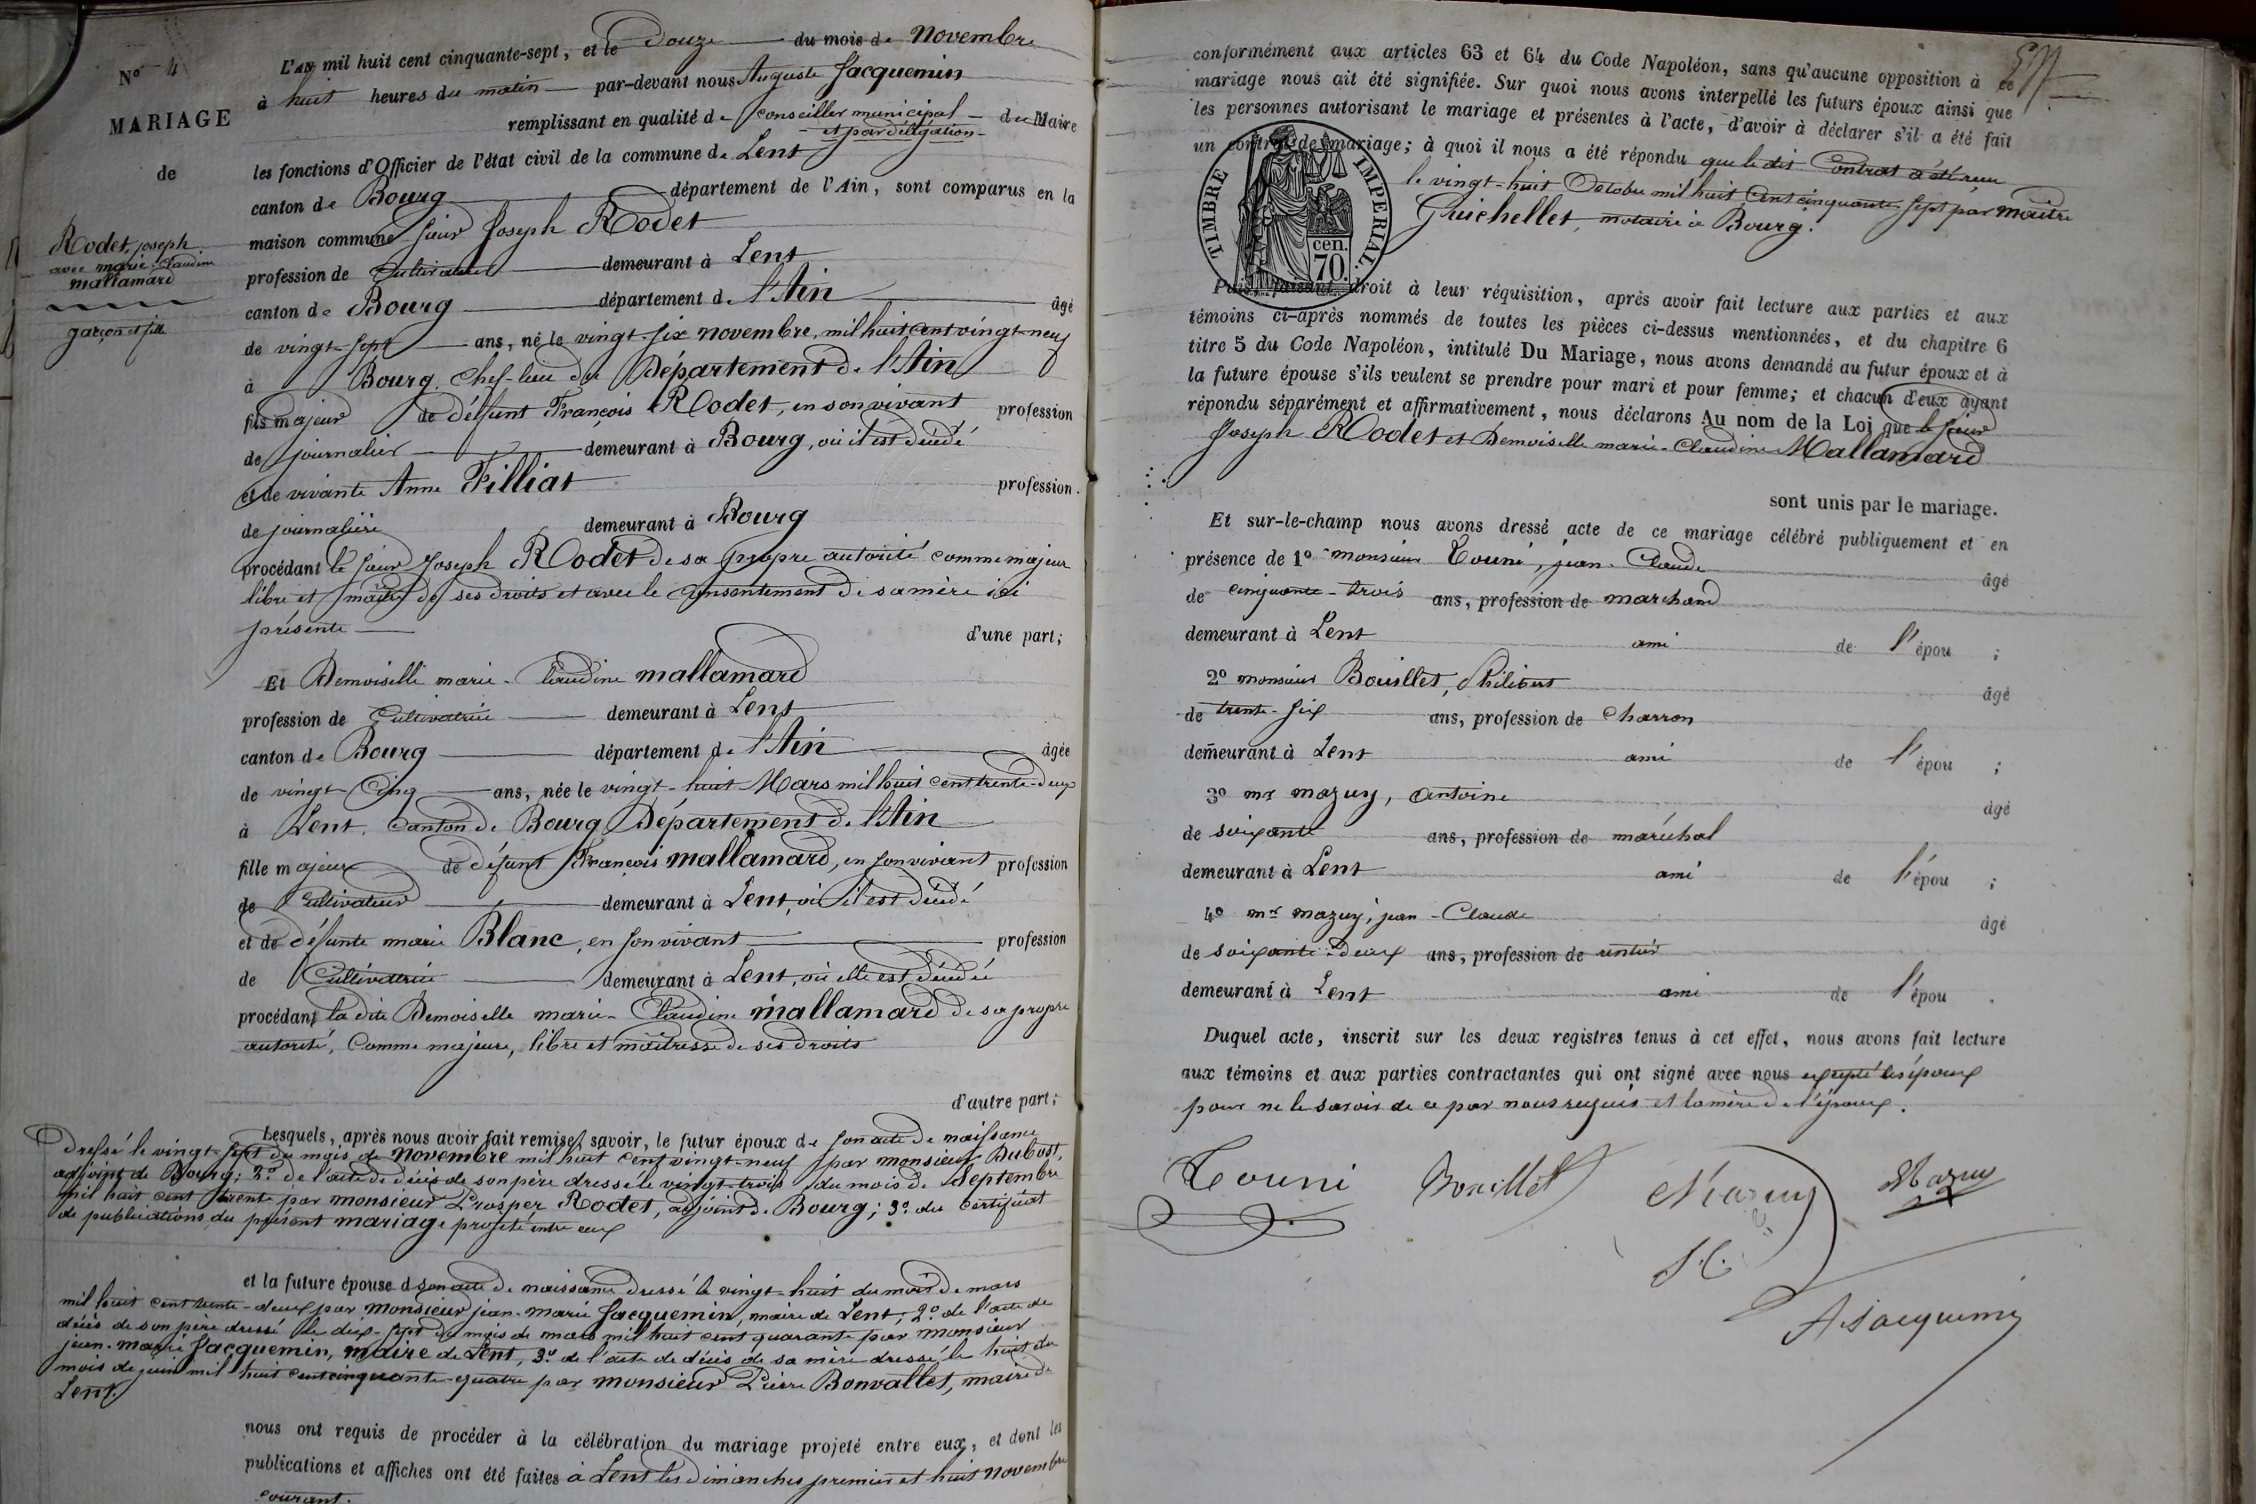 N° 4
MARIAGE
de
Rodet, joseph
avec marie-Claudine
mallamard
garçon et fille
L'an mil huit cent cinquante-sept, et le Douze du mois de Novembre
à huit heures du matin par-devant nous Auguste Jacquemin
remplissant en qualité de Conseiller municipal du Maire
et par délégation
les fonctions d'Officier de l'état civil de la commune de Lent
canton de Bourg département de l'Ain, sont comparus en la
maison commune sieur Joseph Rodet
profession de Cultivateur demeurant à Lent
canton de Bourg département de l'Ain âgé
de vingt-sept ans, né le vingt-six novembre, mil huit cent vingt-neuf
à Bourg, Chef-lieu du Département de l'Ain
fils majeur de défunt François Rodet, en son vivant profession
de journalier demeurant à Bourg, où il est décédé
et de vivante Anne Filliat profession
de journalière demeurant à Bourg
procédant le sieur Joseph Rodet de sa propre autorité comme majeur
libre et maître de ses droits et avec le consentement de sa mère ici
présente d'une part;
Et Demoiselle marie-Claudine mallamard
profession de Cultivatrice demeurant à Lent
canton de Bourg département de l'Ain âgée
de vingt-Cinq ans, née le vingt-huit Mars mil huit cent trente-deux
à Lent, Canton de Bourg Département de l'Ain
fille majeure de défunt François mallamard, en son vivant profession
de Cultivateur demeurant à Lent, où il est décédé
et de défunte marie Blanc, en son vivant profession
de Cultivatrice demeurant à Lent, où elle est décédée
procédant la dite Demoiselle marie-Claudine mallamard de sa propre
autorité, Comme majeure, libre et maîtresse de ses droits
d'autre part;
Lesquels, après nous avoir fait remise, savoir, le futur époux de son acte de naissance
dressé le vingt-sept du mois de novembre mil huit cent vingt-neuf par monsieur Dubost,
adjoint de Bourg; 2° de l'acte de décès de son père dressé le vingt-trois du mois de Septembre
mil huit cent trente par monsieur Prosper Rodet, adjoint de Bourg; 3° du certificat
de publications du présent mariage projeté entre eux
et la future épouse d son acte de naissance dressé le vingt-huit du mois de mars
mil huit cent trente-deux par monsieur jean-marie Jacquemin, maire de Lent, 2° de l'acte de
décès de son père dressé le dix-sept du mois de mars mil huit cent quarante par monsieur
jean-marie Jacquemin, maire de Lent, 3° de l'acte de décès de sa mère dressé le huit du
mois de juin mil huit cent cinquante-quatre par monsieur Pierre Bonvallet, maire de
Lent.
nous ont requis de procéder à la célébration du mariage projeté entre eux, et dont les
publications et affiches ont été faites à Lent les Dimanches premier et huit novembre
courant.
conformément aux articles 63 et 64 du Code Napoléon, sans qu'aucune opposition à ce
mariage nous ait été signifiée. Sur quoi nous avons interpellé les futurs époux ainsi que
les personnes autorisant le mariage et présentes à l'acte, d'avoir à déclarer s'il a été fait
un contrat de mariage; à quoi il nous a été répondu que le dit Contrat a été reçu
le vingt-huit Octobre mil huit Cent cinquante-sept par maître
Guichellet, notaire à Bourg.
TIMBRE IMPERIAL.
cen.
70.
Puis, faisant droit à leur réquisition, après avoir fait lecture aux parties et aux
témoins ci-après nommés de toutes les pièces ci-dessus mentionnées, et du chapitre 6
titre 5 du Code Napoléon, intitulé Du Mariage, nous avons demandé au futur époux et à
la future épouse s'ils veulent se prendre pour mari et pour femme; et chacun d'eux ayant
répondu séparément et affirmativement, nous déclarons Au nom de la Loi que le sieur
Joseph Rodet et Demoiselle marie-Claudine Mallamard
sont unis par le mariage.
Et sur-le-champ nous avons dressé acte de ce mariage célébré publiquement et en
présence de 1° monsieur Touni, jean-Claude âgé
de cinquante-trois ans, profession de marchand
demeurant à Lent ami de l'épou ;
2° monsieur Bouillet, Philibert âgé
de trente-six ans, profession de Charron
demeurant à Lent ami de l'épou ;
3° mr mazuy, antoine âgé
de soixante ans, profession de maréchal
demeurant à Lent ami de l'épou ;
4° mr mazuy, jean-Claude âgé
de soixante-deux ans, profession de rentier
demeurant à Lent ami de l'épou .
Duquel acte, inscrit sur les deux registres tenus à cet effet, nous avons fait lecture
aux témoins et aux parties contractantes qui ont signé avec nous excepté les époux
pour ne le savoir de ce par nous requis et la mère de l'époux.
Touni Bouillet Mazuy Mazuy
J. C.
A Jacquemin